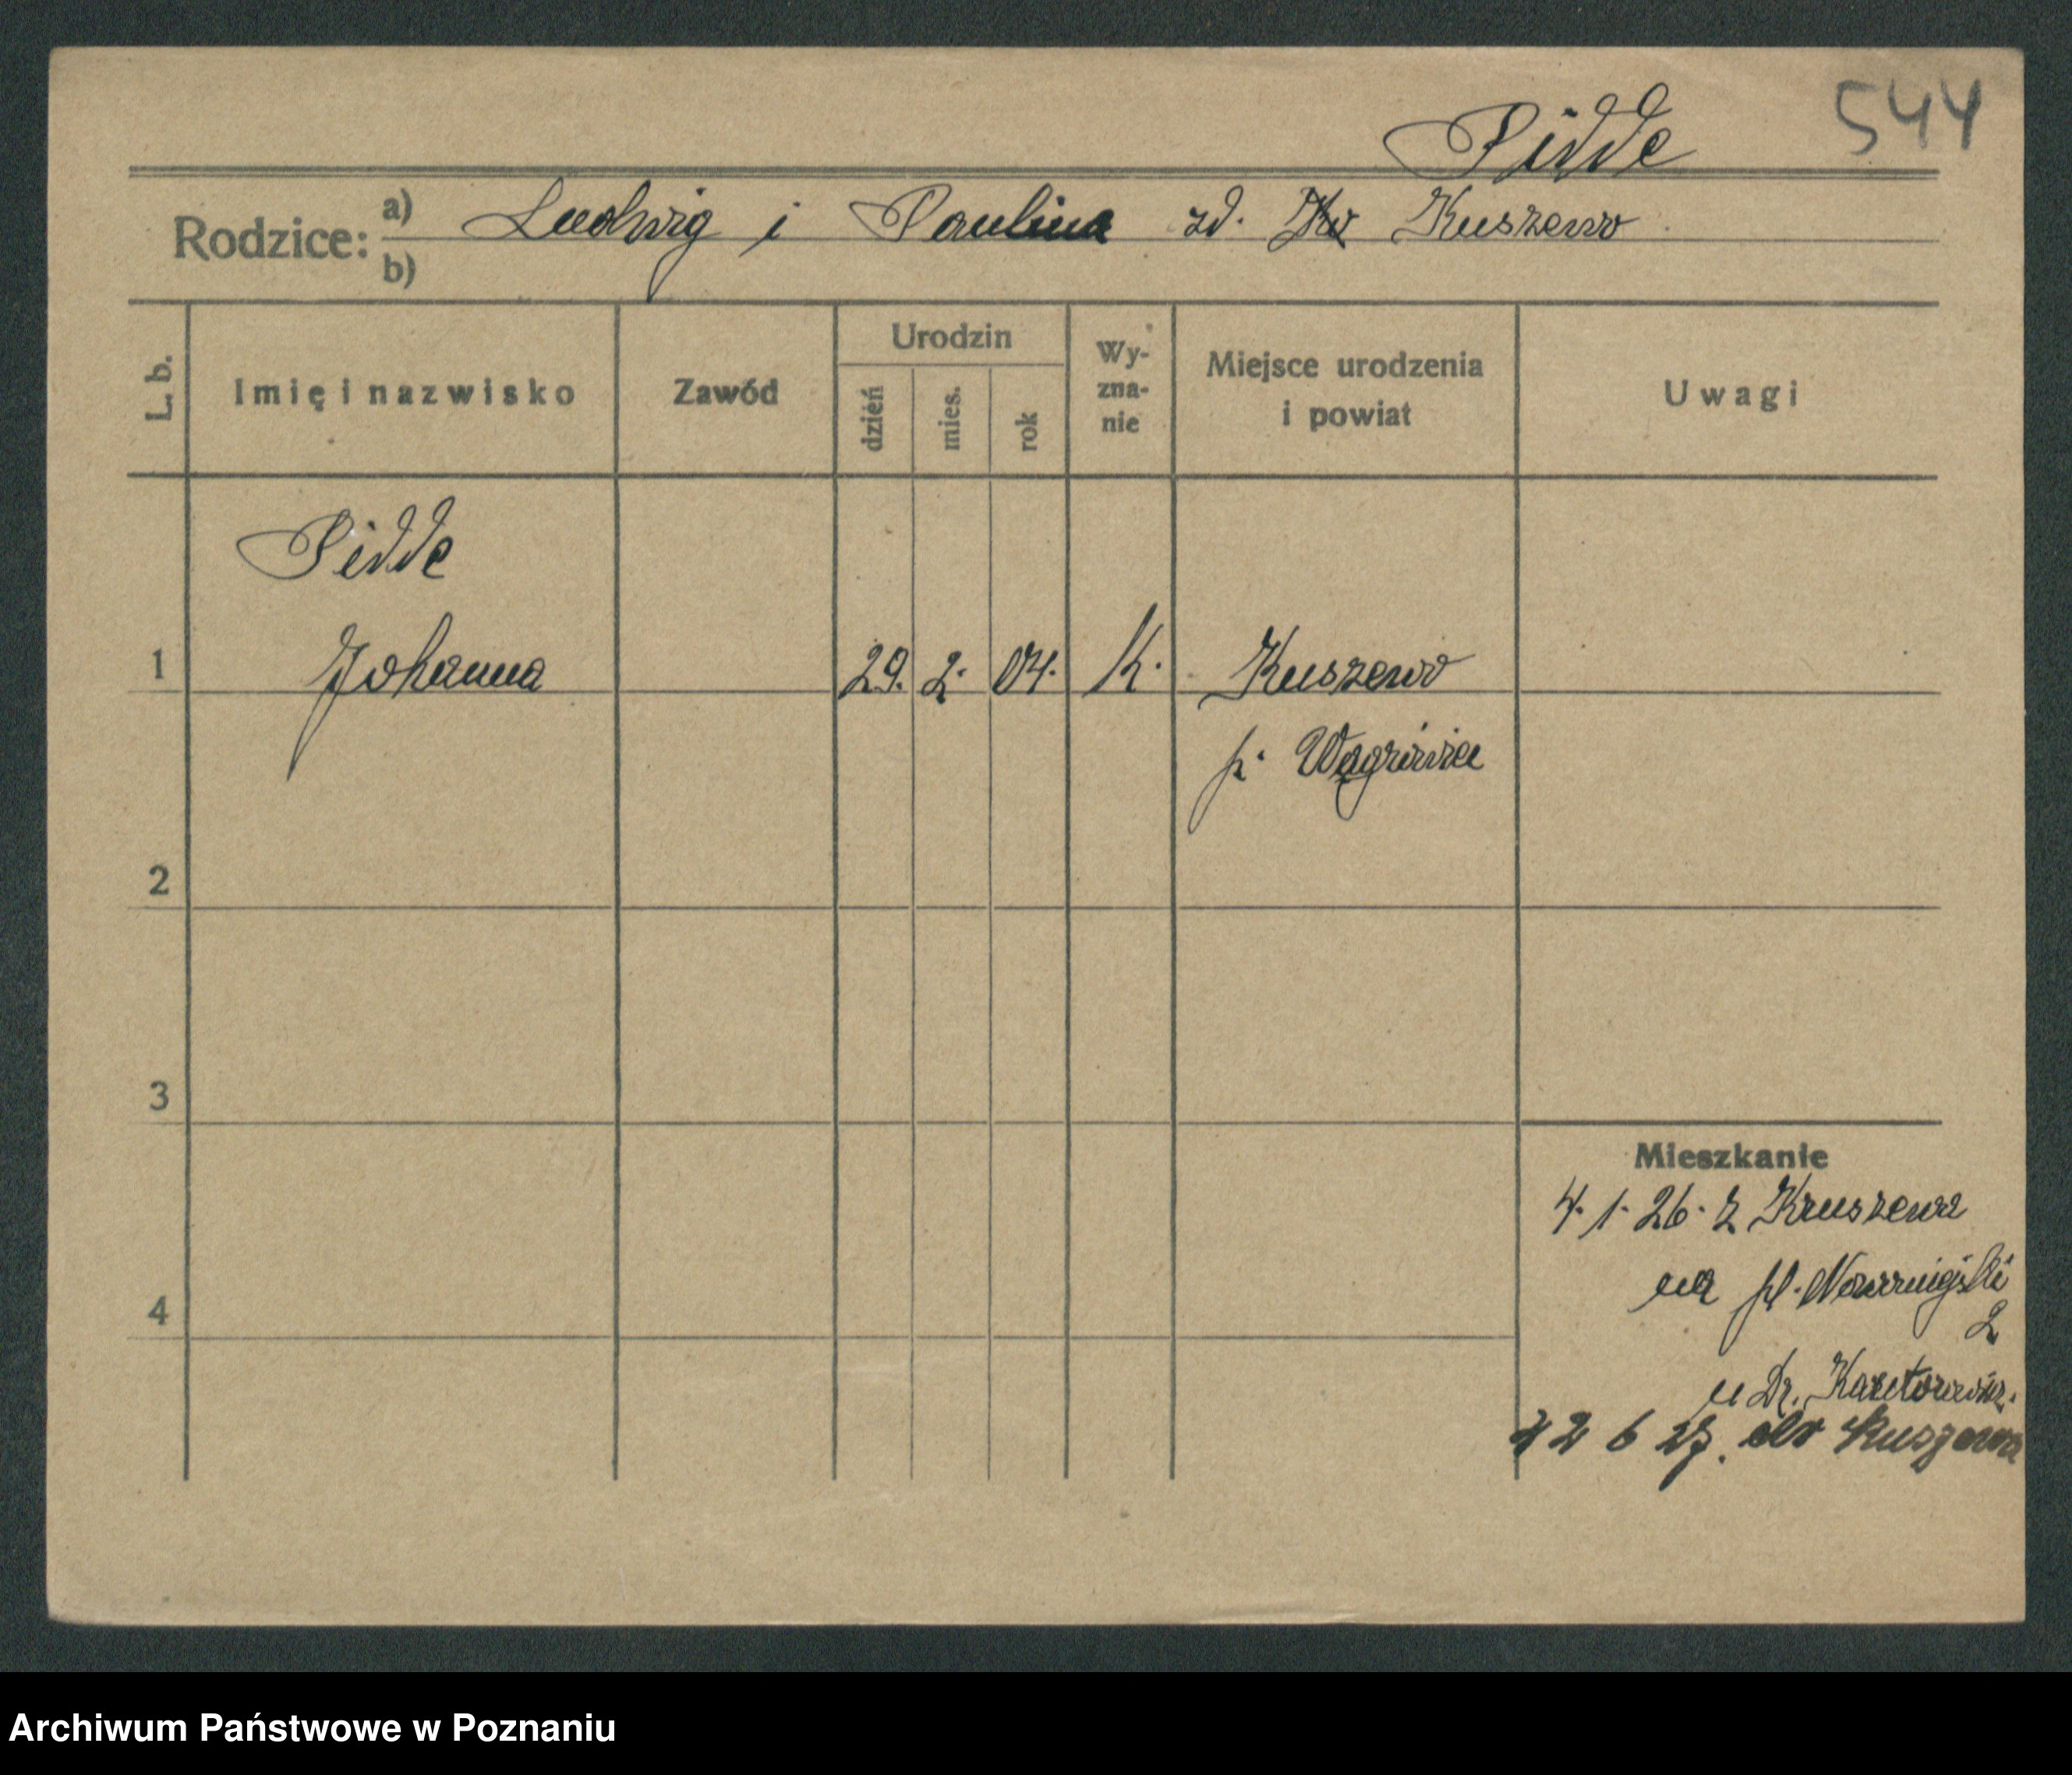 544
Pidde
Rodzice: a) Ludwig i Paulina zd. Kuszewo
b)
L. b. Imię i nazwisko Zawód Urodzin dzień mies. rok Wy-zna-nie Miejsce urodzenia i powiat Uwagi
Pidde
1 Johanna 29. 2. 04. K. Kuszewo
p. Wągrówiec
2
3
Mieszkanie
4. 1. 26. z Kruszewa
na pl. Nowomiejski
4 2
u Dr.
22 6 27. do Kuszewa
Archiwum Państwowe w Poznaniu